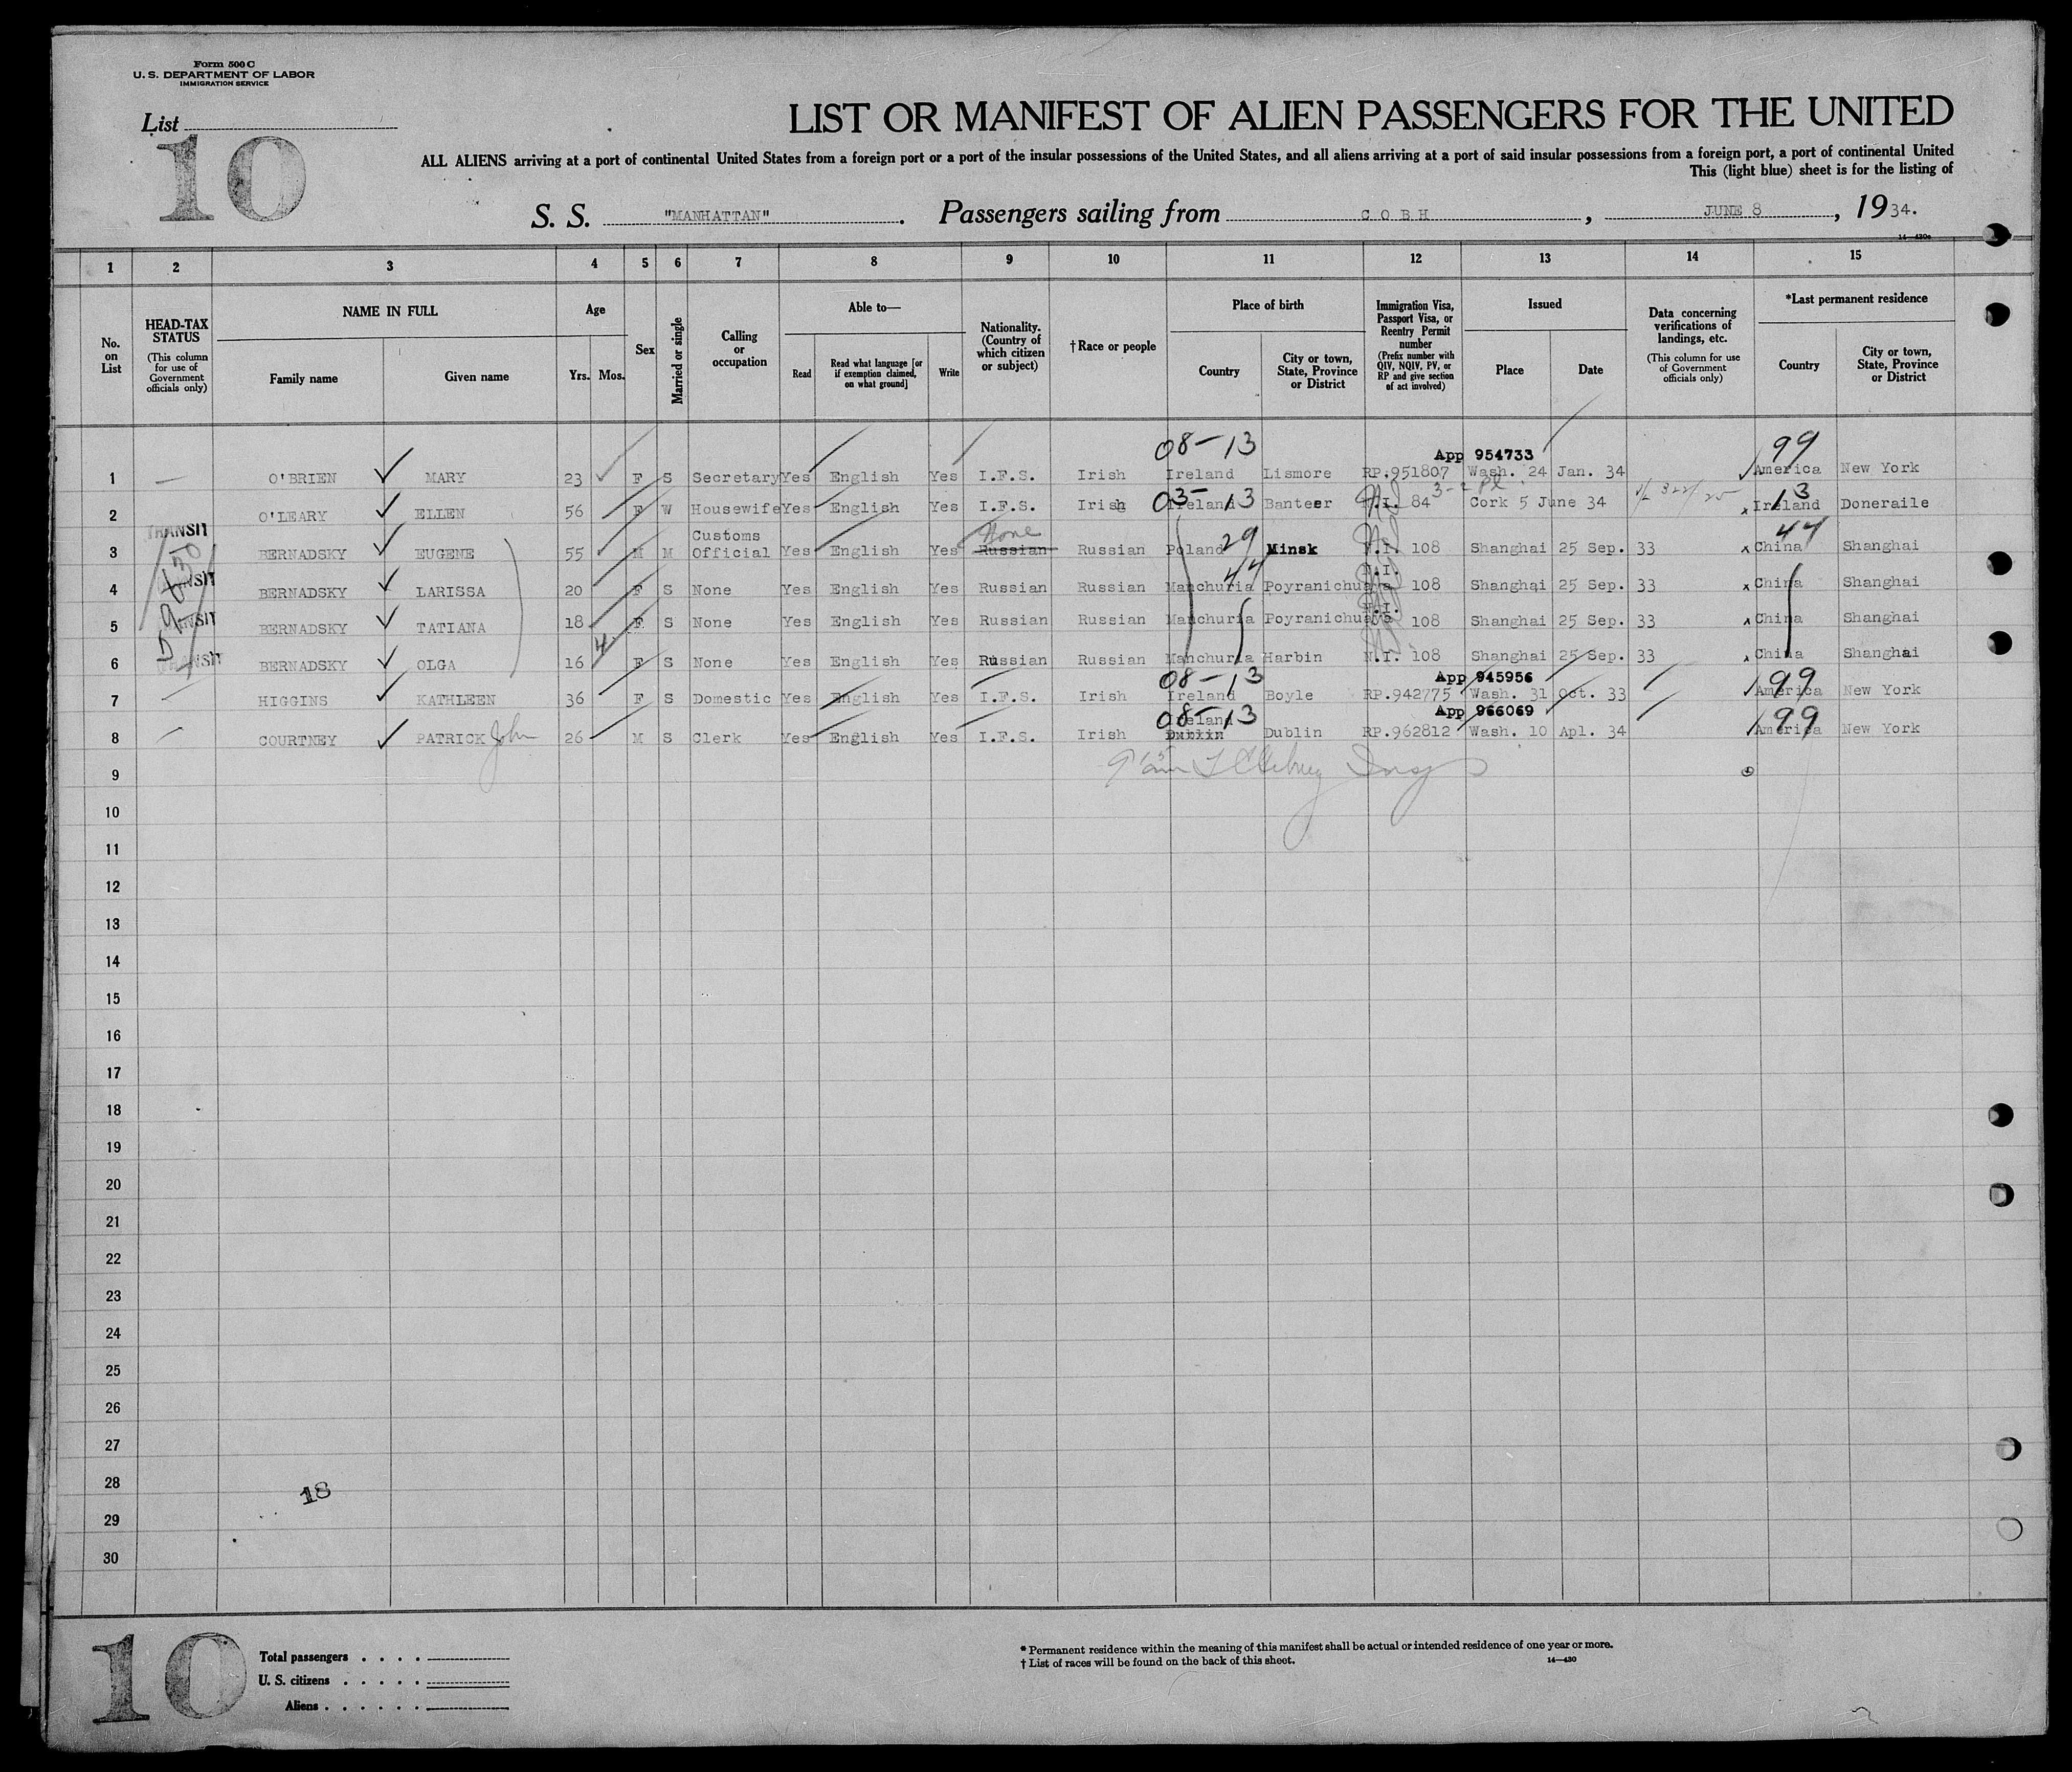 Form 500 C
U. S. DEPARTMENT OF LABOR
IMMIGRATION SERVICE
List
10
LIST OR MANIFEST OF ALIEN PASSENGERS FOR THE UNITED
ALL ALIENS arriving at a port of continental United States from a foreign port or a port of the insular possessions of the United States, and all aliens arriving at a port of said insular possessions from a foreign port, a port of continental United
This (light blue) sheet is for the listing of
S. S. "MANHATTAN". Passengers sailing from C O B H, JUNE 8, 1934.
1 2 3 4 5 6 7 8 9 10 11 12 13 14 15
No. on List
HEAD-TAX STATUS (This column for use of Government officials only)
NAME IN FULL
Family name Given name
Age
Yrs. Mos.
Sex
Married or single
Calling or occupation
Able to—
Read Read what language [or if exemption claimed, on what ground] Write
Nationality. (Country of which citizen or subject)
†Race or people
Place of birth
Country City or town, State, Province or District
Immigration Visa, Passport Visa, or Reentry Permit number (Prefix number with QIV, NQIV, PV, or RP and give section of act involved)
Issued
Place Date
Data concerning verifications of landings, etc. (This column for use of Government officials only)
*Last permanent residence
Country City or town, State, Province or District
08-13 App 954733 99
1 — O'BRIEN MARY 23 F S Secretary Yes English Yes I.F.S. Irish Ireland Lismore RP.951807 Wash. 24 Jan. 34 America New York
2 O'LEARY ELLEN 56 F W Housewife Yes English Yes I.F.S. Irish 03-13 Ireland Banteer N.I. 84 Cork 5 June 34 13 Ireland Doneraile
TRANSIT Customs None 29 44
3 BERNADSKY EUGENE 55 M M Official Yes English Yes Russian Russian Poland Minsk N.I. 108 Shanghai 25 Sep. 33 China Shanghai
TRANSIT 44 N.I.
4 BERNADSKY LARISSA 20 F S None Yes English Yes Russian Russian Manchuria Poyranichuaya 108 Shanghai 25 Sep. 33 China Shanghai
TRANSIT N.I.
5 BERNADSKY TATIANA 18 F S None Yes English Yes Russian Russian Manchuria Poyranichuaya 108 Shanghai 25 Sep. 33 China Shanghai
6 TRANSIT BERNADSKY OLGA 16 F S None Yes English Yes Russian Russian Manchuria Harbin N.I. 108 Shanghai 25 Sep. 33 China Shanghai
08-13 App 945956 99
7 HIGGINS KATHLEEN 36 F S Domestic Yes English Yes I.F.S. Irish Ireland Boyle RP.942775 Wash. 31 Oct. 33 America New York
08-13 Ireland App 966069 99
8 COURTNEY PATRICK John 26 M S Clerk Yes English Yes I.F.S. Irish Dublin Dublin RP.962812 Wash. 10 Apl. 34 America New York
9
10
11
12
13
14
15
16
17
18
19
20
21
22
23
24
25
26
27
28
18
29
30
10
Total passengers
U. S. citizens
Aliens
* Permanent residence within the meaning of this manifest shall be actual or intended residence of one year or more.
† List of races will be found on the back of this sheet.
14—430